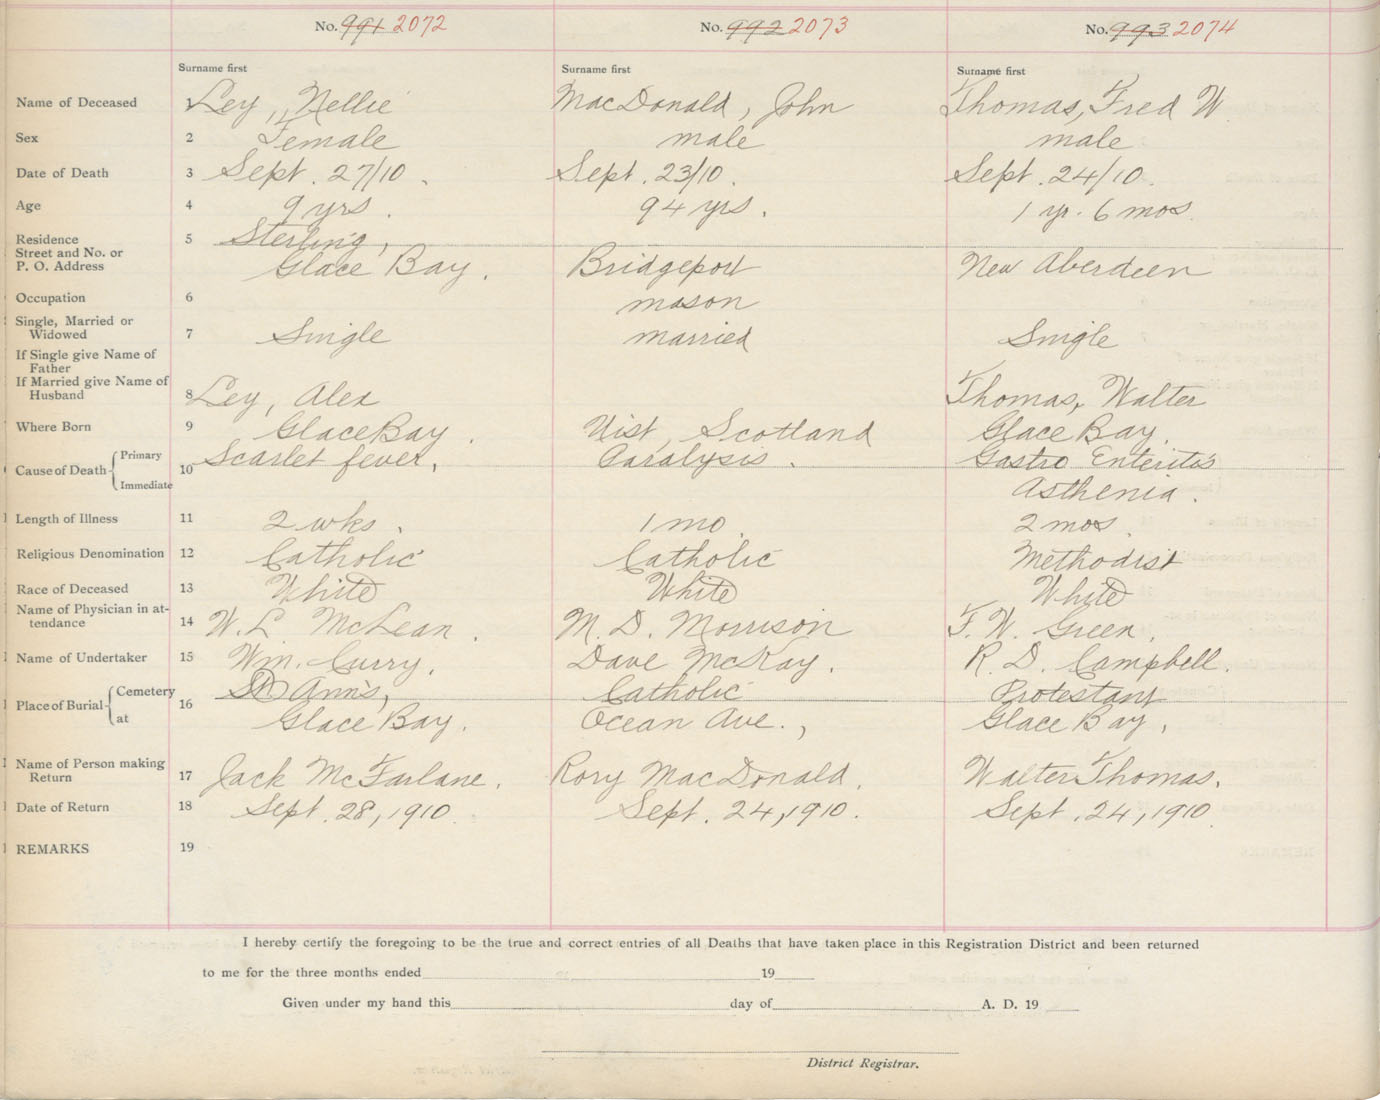 No. 991 2072 No. 992 2073 No. 993 2074
Surname first Surname first Surname first
Name of Deceased 1 Ley, Nellie MacDonald, John Thomas, Fred W
Sex 2 Female male male
Date of Death 3 Sept. 27/10. Sept. 23/10. Sept. 24/10.
Age 4 9 yrs. 94 yrs. 1 yr. 6 mos.
Residence 5 Sterling,
Street and No. or
P. O. Address Glace Bay. Bridgeport New Aberdeen
Occupation 6 mason
Single, Married or
Widowed 7 Single married Single
If Single give Name of
Father
If Married give Name of
Husband 8 Ley, Alex Thomas, Walter
Where Born 9 Glace Bay. Uist, Scotland Glace Bay.
Cause of Death Primary 10 Scarlet fever, Paralysis. Gastro Enteritis
Immediate Asthenia.
Length of Illness 11 2 wks. 1 mo. 2 mos.
Religious Denomination 12 Catholic Catholic Methodist
Race of Deceased 13 White White White
Name of Physician in at-
tendance 14 W. L. McLean. M. D. Morrison F. W. Green.
Name of Undertaker 15 Wm. Curry. Dave McKay. R. D. Campbell.
Place of Burial Cemetery 16 St Ann's, Catholic Protestant
at Glace Bay. Ocean Ave., Glace Bay,
Name of Person making
Return 17 Jack McFarlane. Rory MacDonald. Walter Thomas.
Date of Return 18 Sept. 28, 1910. Sept. 24, 1910. Sept. 24, 1910.
REMARKS 19
I hereby certify the foregoing to be the true and correct entries of all Deaths that have taken place in this Registration District and been returned
to me for the three months ended 19
Given under my hand this day of A. D. 19
District Registrar.